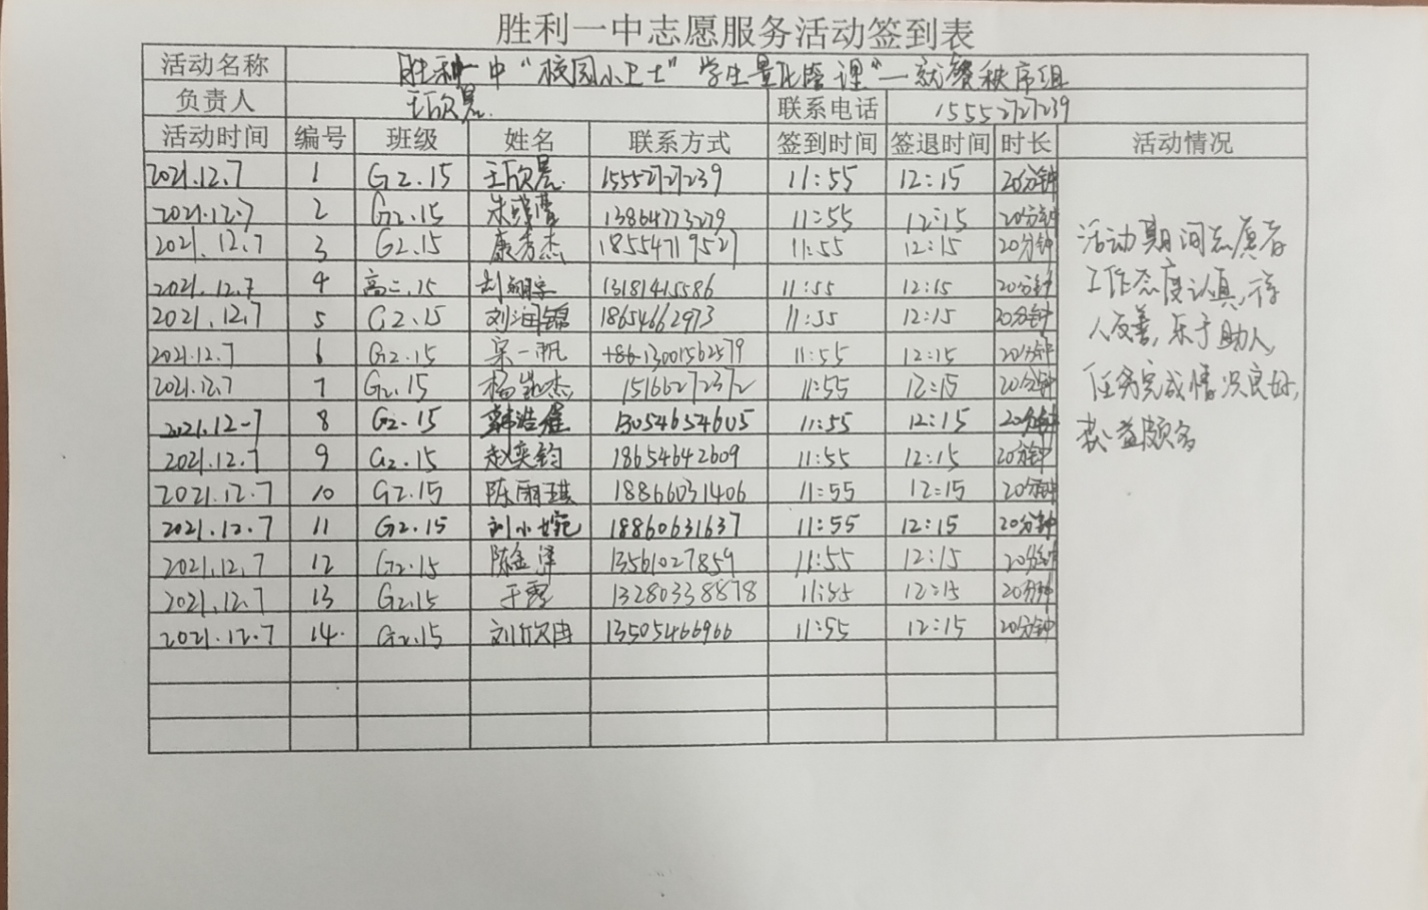 胜利一中志愿服务活动签到表
活动名称 胜利一中“校园小卫士”学生量化管理“一就餐秩序组
负责人 王欣晨 联系电话 15552727239
活动时间 编号 班级 姓名 联系方式 签到时间 签退时间 时长 活动情况
2021.12.7 1 G2.15 王欣晨 15552727239 11:55 12:15 20分钟
2021.12.7 2 G2.15 朱 13864773279 11:55 12:15 20分钟
2021.12.7 3 G2.15 康秀杰 18554719527 11:55 12:15 20分钟
2021.12.7 4 高二.15 13181415586 11:55 12:15 20分钟
2021.12.7 5 G2.15 刘润锦 18654662973 11:55 12:15 20分钟
2021.12.7 6 G2.15 宋一帆 +86-13001562579 11:55 12:15 20分钟
2021.12.7 7 G2.15 杨凯杰 15166272372 11:55 12:15 20分钟
2021.12-7 8 G2.15 韩浩 13054654605 11:55 12:15 20分钟
2021.12.7 9 G2.15 赵奕钧 18654642609 11:55 12:15 20分钟
2021.12.7 10 G2.15 陈雨琪 18866031406 11:55 12:15 20分钟
2021.12.7 11 G2.15 刘小婉 18860631637 11:55 12:15 20分钟
2021.12.7 12 G2.15 陈金泽 13561027859 11:55 12:15 20分钟
2021.12.7 13 G2.15 于露 13280338878 11:55 12:15 20分钟
2021.12.7 14. G2.15 刘欣冉 13505466966 11:55 12:15 20分钟
活动期间志愿者
工作态度认真,待
人友善,乐于助人,
任务完成情况良好,
获益颇多